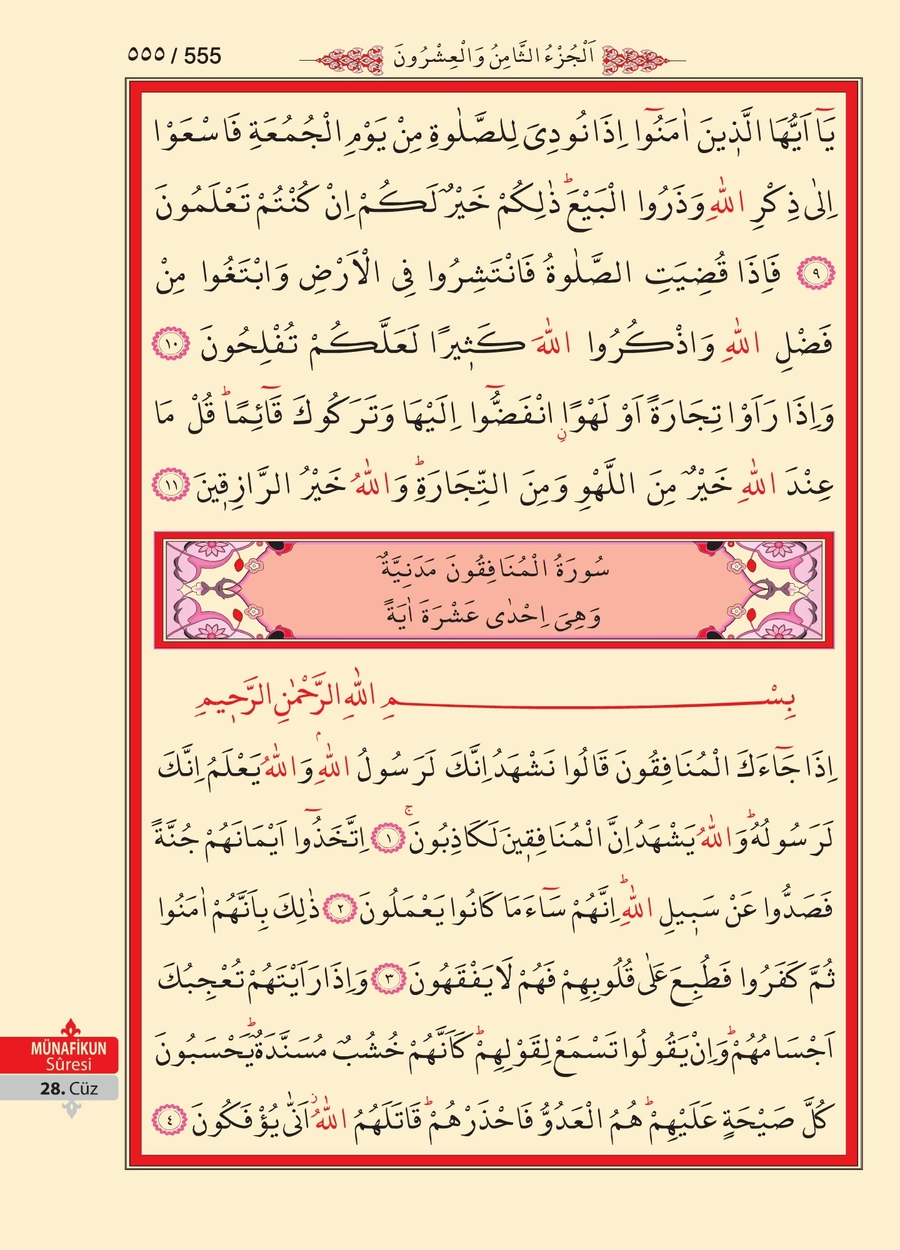 ٥٥٥ / 555
اَلْجُزْءُ الثَّامِنُ وَالْعِشْرُونَ
يَٓا اَيُّهَا الَّذ۪ينَ اٰمَنُٓوا اِذَا نُودِيَ لِلصَّلٰوةِ مِنْ يَوْمِ الْجُمُعَةِ فَاسْعَوْا
اِلٰى ذِكْرِ اللّٰهِ وَذَرُوا الْبَيْعَۜ ذٰلِكُمْ خَيْرٌ لَكُمْ اِنْ كُنْتُمْ تَعْلَمُونَ
﴿٩﴾ فَاِذَا قُضِيَتِ الصَّلٰوةُ فَانْتَشِرُوا فِي الْاَرْضِ وَابْتَغُوا مِنْ
فَضْلِ اللّٰهِ وَاذْكُرُوا اللّٰهَ كَث۪يرًا لَعَلَّكُمْ تُفْلِحُونَ ﴿١٠﴾
وَاِذَا رَاَوْا تِجَارَةً اَوْ لَهْوًاۨ انْفَضُّٓوا اِلَيْهَا وَتَرَكُوكَ قَٓائِمًاۜ قُلْ مَا
عِنْدَ اللّٰهِ خَيْرٌ مِنَ اللَّهْوِ وَمِنَ التِّجَارَةِۜ وَاللّٰهُ خَيْرُ الرَّازِق۪ينَ ﴿١١﴾
سُورَةُ الْمُنَافِقُونَ مَدَنِيَّةٌ
وَهِيَ اِحْدٰى عَشْرَةَ اٰيَةً
بِسْمِ اللّٰهِ الرَّحْمٰنِ الرَّح۪يمِ
اِذَا جَٓاءَكَ الْمُنَافِقُونَ قَالُوا نَشْهَدُ اِنَّكَ لَرَسُولُ اللّٰهِۢ وَاللّٰهُ يَعْلَمُ اِنَّكَ
لَرَسُولُهُۜ وَاللّٰهُ يَشْهَدُ اِنَّ الْمُنَافِق۪ينَ لَكَاذِبُونَۚ ﴿١﴾ اِتَّخَذُٓوا اَيْمَانَهُمْ جُنَّةً
فَصَدُّوا عَنْ سَب۪يلِ اللّٰهِۜ اِنَّهُمْ سَٓاءَ مَا كَانُوا يَعْمَلُونَ ﴿٢﴾ ذٰلِكَ بِاَنَّهُمْ اٰمَنُوا
ثُمَّ كَفَرُوا فَطُبِعَ عَلٰى قُلُوبِهِمْ فَهُمْ لَا يَفْقَهُونَ ﴿٣﴾ وَاِذَا رَاَيْتَهُمْ تُعْجِبُكَ
اَجْسَامُهُمْۜ وَاِنْ يَقُولُوا تَسْمَعْ لِقَوْلِهِمْۜ كَاَنَّهُمْ خُشُبٌ مُسَنَّدَةٌۜ يَحْسَبُونَ
كُلَّ صَيْحَةٍ عَلَيْهِمْۜ هُمُ الْعَدُوُّ فَاحْذَرْهُمْۜ قَاتَلَهُمُ اللّٰهُۘ اَنّٰى يُؤْفَكُونَ ﴿٤﴾
MÜNAFİKUN
Sûresi
28. Cüz